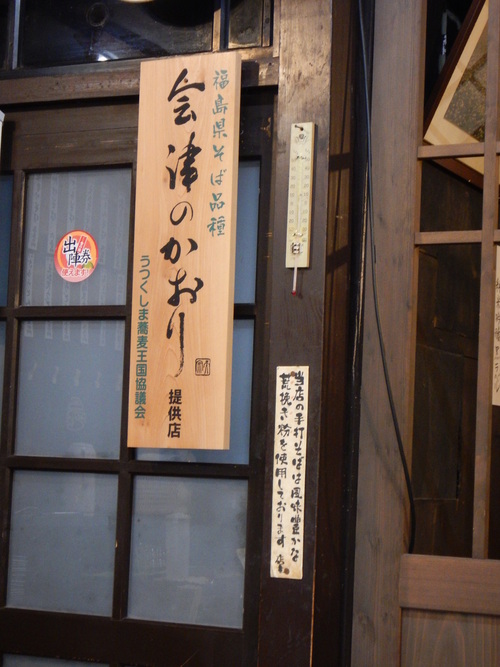 福島県そば品種
会津のかおり
うつくしま蕎麦王国協議会
提供店
出陣券
使えます!
当店の手打そばは風味豊かな
荒挽き粉を使用しております